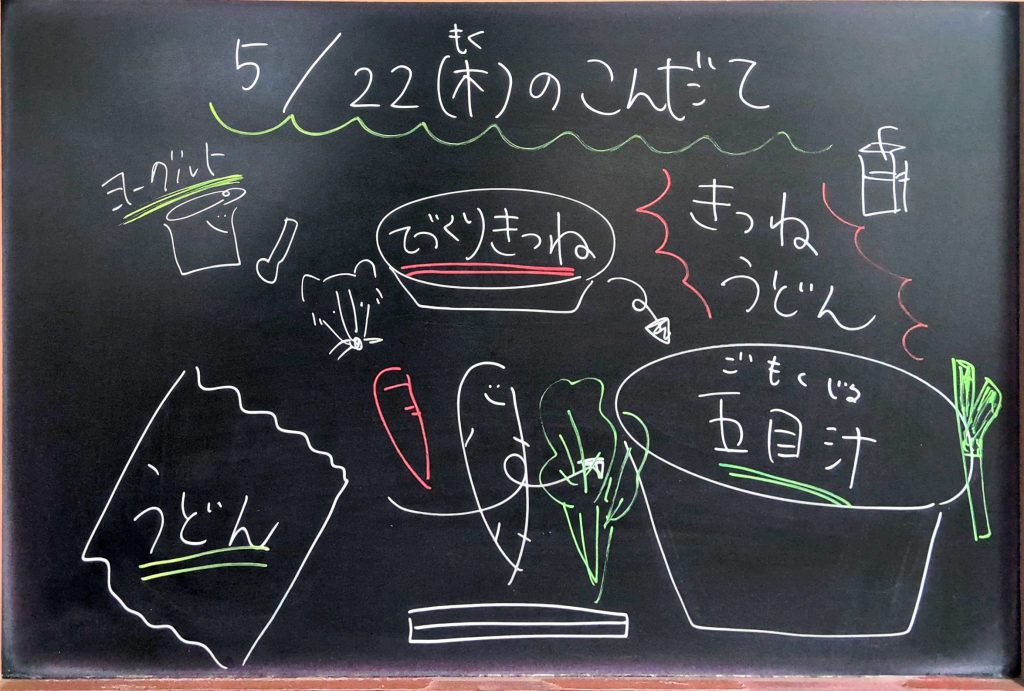 もく
5/22(木)のこんだて
ヨーグルト
てづくりきつね
きつね
うどん
ごもくじる
五目汁
うどん